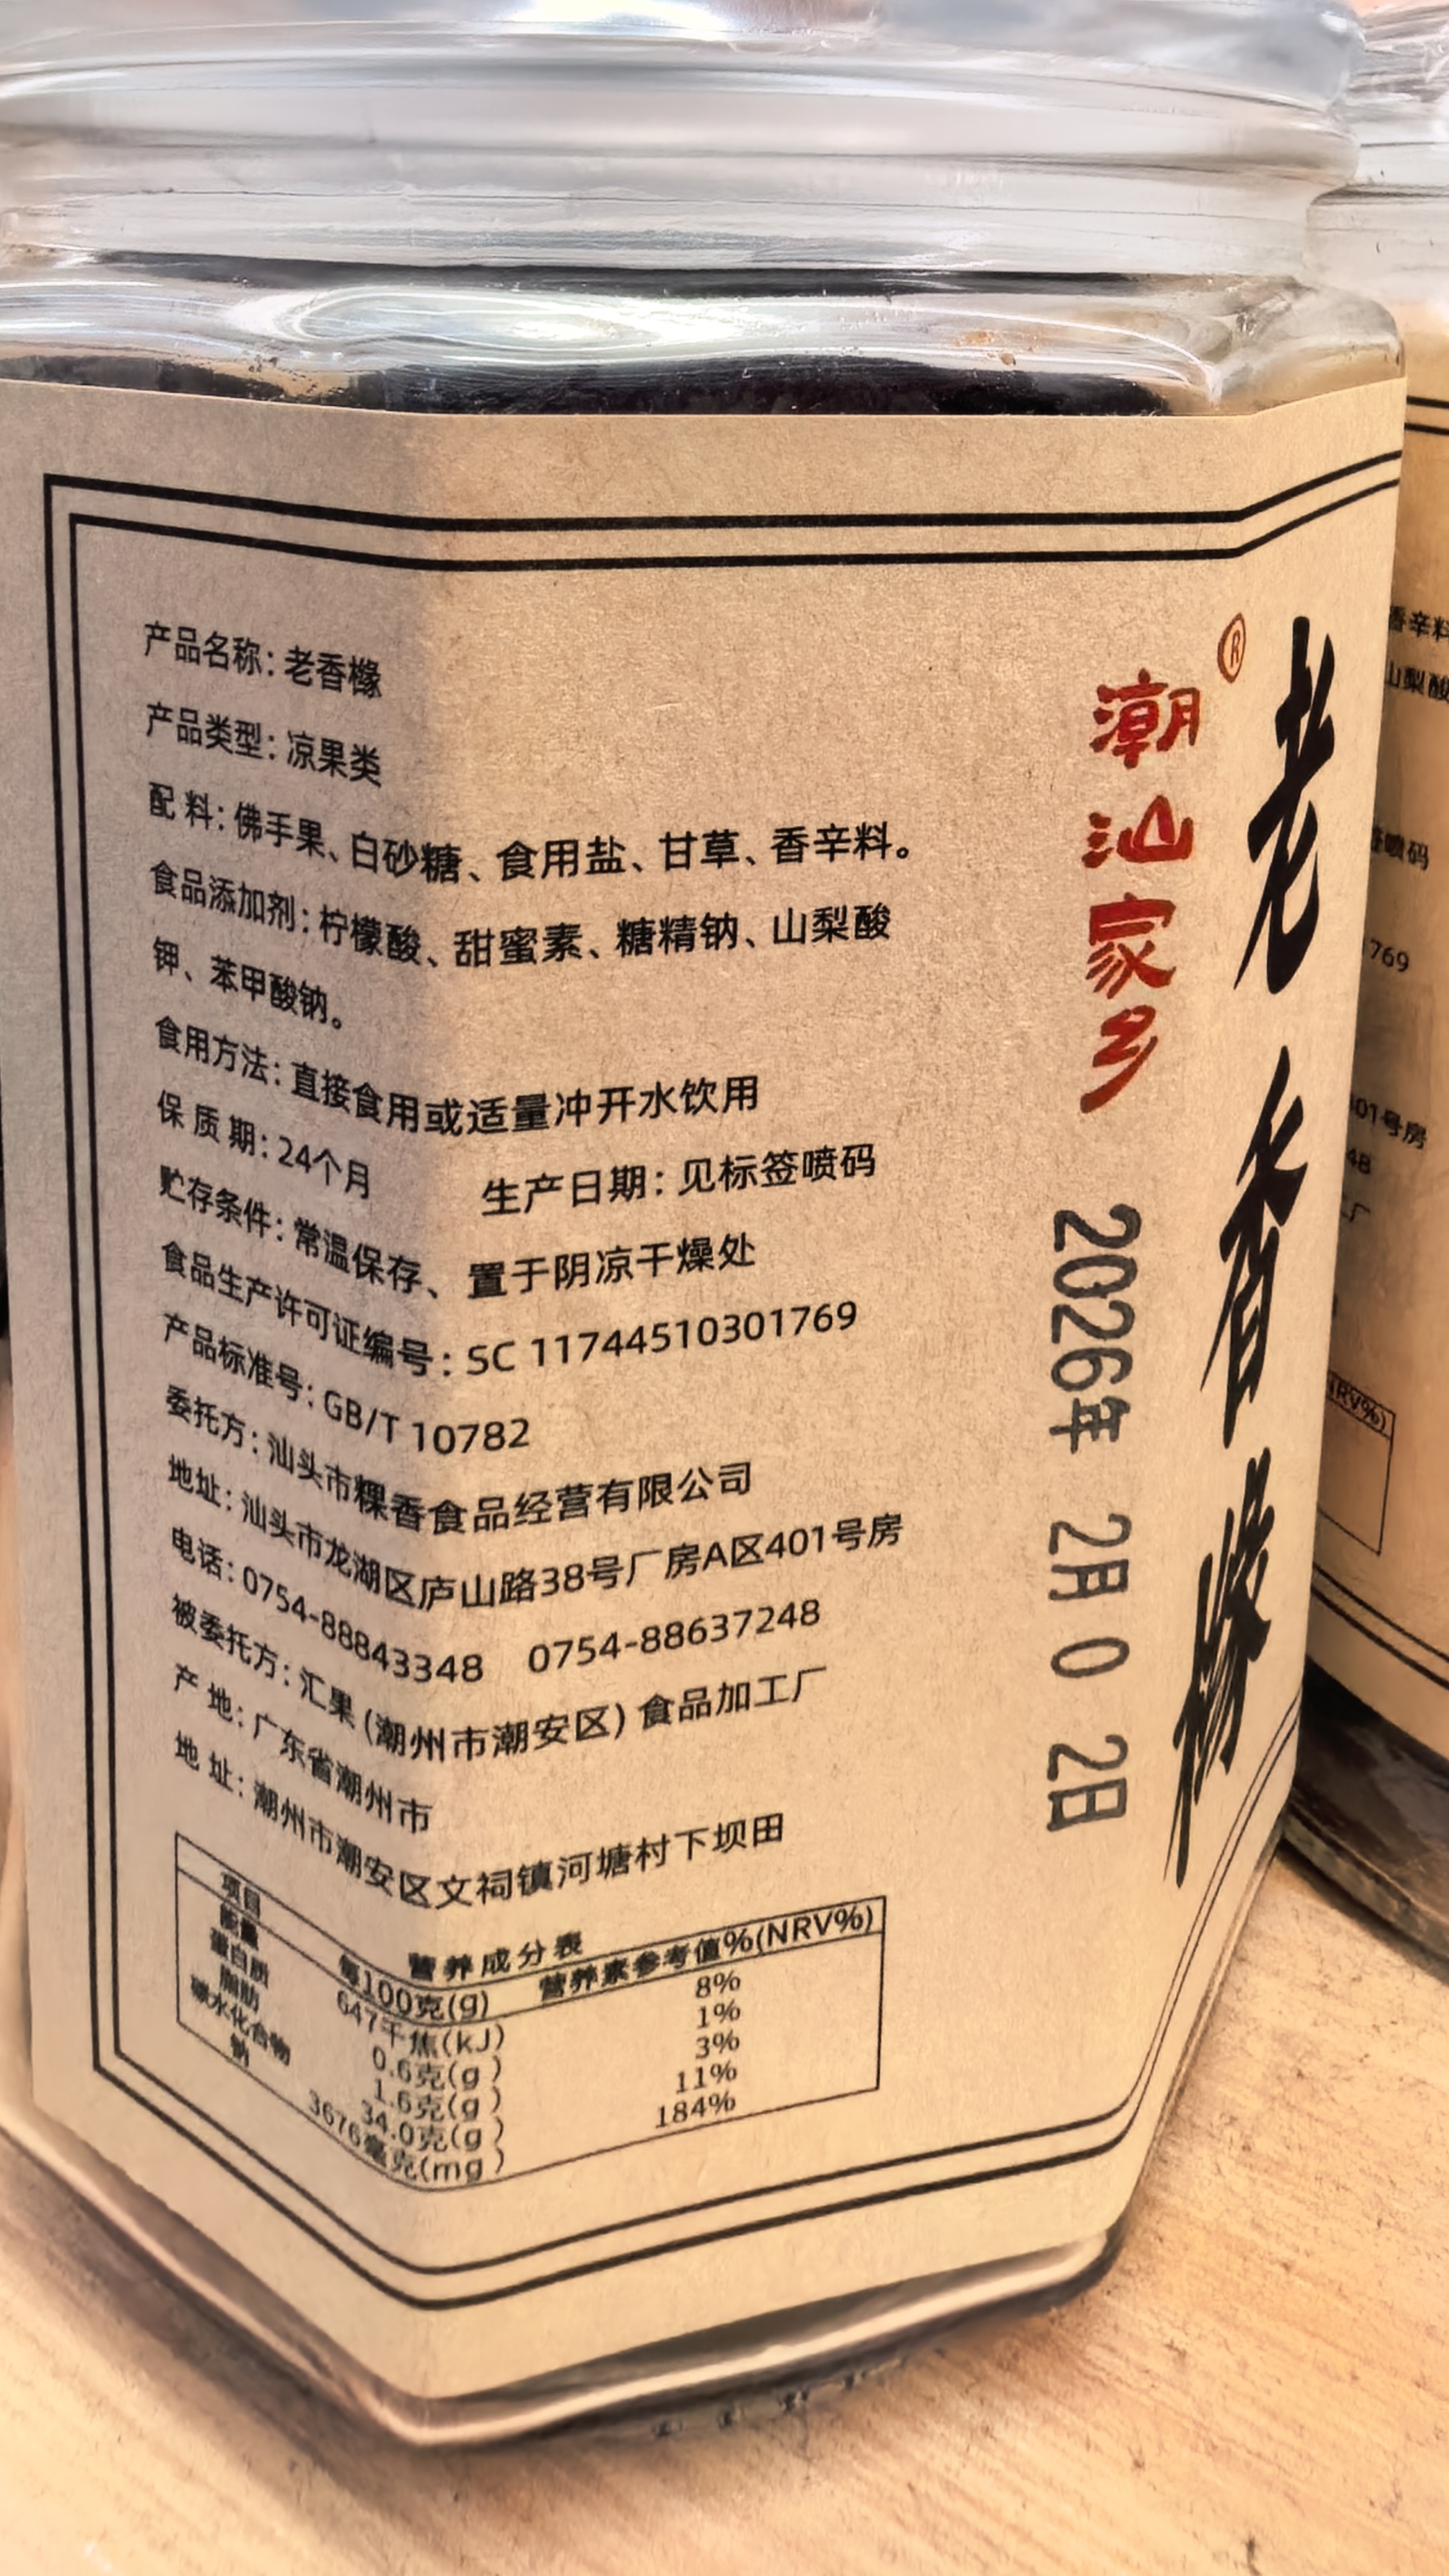 产品名称：老香橼
产品类型：凉果类
配 料：佛手果、白砂糖、食用盐、甘草、香辛料。
食品添加剂：柠檬酸、甜蜜素、糖精钠、山梨酸
钾、苯甲酸钠。
食用方法：直接食用或适量冲开水饮用
保 质 期：24个月 生产日期：见标签喷码
贮存条件：常温保存、置于阴凉干燥处
食品生产许可证编号：SC 11744510301769
产品标准号：GB/T 10782
委托方：汕头市粿香食品经营有限公司
地址：汕头市龙湖区庐山路38号厂房A区401号房
电话：0754-88843348 0754-88637248
被委托方：汇果（潮州市潮安区）食品加工厂
产 地：广东省潮州市
地 址：潮州市潮安区文祠镇河塘村下坝田
营养成分表
项目 每100克(g) 营养素参考值%(NRV%)
能量 647千焦(kJ) 8%
蛋白质 0.6克(g) 1%
脂肪 1.6克(g) 3%
碳水化合物 34.0克(g) 11%
钠 3676毫克(mg) 184%
潮汕家乡®
2026年 2月 0 2日
老香橼
香辛料
山梨酸
签喷码
769
01号房
48
厂
NRV%)